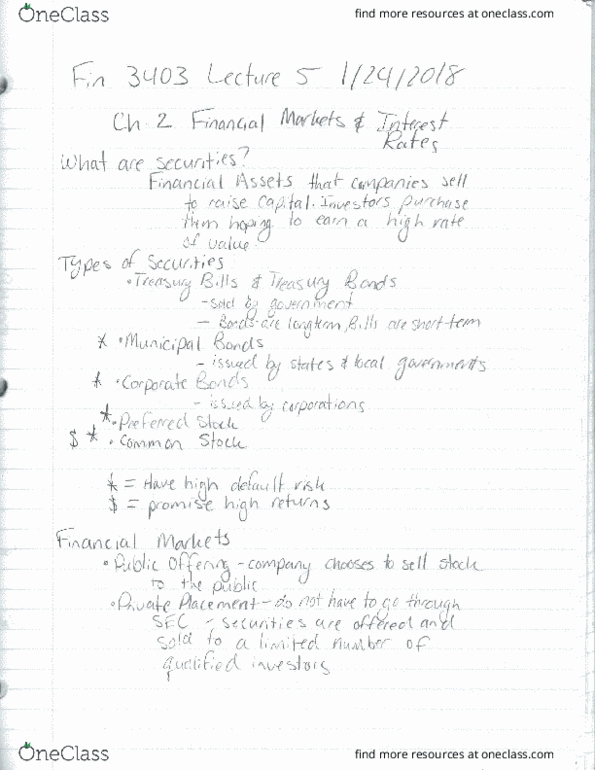 OneClass
find more resources at oneclass.com
Fin 3403 Lecture 5 1/24/2018
Ch 2 Financial Markets & Interest
Rates
What are securities?
Financial Assets that companies sell
to raise capital. Investors purchase
them hoping to earn a high rate
of value.
Types of Securities
• Treasury Bills & Treasury Bonds
- sold by government
- Bonds are longterm, Bills are short-term
* • Municipal Bonds
- issued by states & local governments
* • Corporate Bonds
- issued by corporations
* • Preferred Stock
$ * • Common Stock
* = Have high default risk
$ = promise high returns
Financial Markets
• Public Offering - company chooses to sell stock
to the public
• Private Placement - do not have to go through
SEC - securities are offered and
sold to a limited number of
qualified investors
OneClass
find more resources at oneclass.com